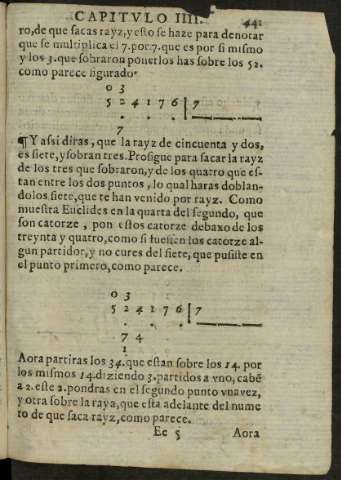 CAPITVLO IIII. 441
ro, de que sacas rayz, y esto se haze para denotar
que se multiplica el 7. por 7. que es por si mismo
y los 3. que sobraron ponerlos has sobre los 52.
como parece figurado.
0 3
5 2 4 1 7 6 | 7
. . .
7
¶ Y assi diras, que la rayz de cincuenta y dos,
es siete, y sobran tres. Prosigue para sacar la rayz
de los tres que sobraron, y de los quatro que es-
tan entre los dos puntos, lo qual haras doblan-
dolos siete, que te han venido por rayz. Como
muestra Euclides en la quarta del segundo, que
son catorze, pon estos catorze debaxo de los
treynta y quatro, como si fuessen los catorze al-
gun partidor, y no cures del siete, que pusiste en
el punto primero, como parece.
0 3
5 2 4 1 7 6 | 7
. . .
7 4
1
Aora partiras los 34. que estan sobre los 14. por
los mismos 14. diziendo 3. partidos a vno, cabē
a 2. este 2. pondras en el segundo punto vna vez,
y otra sobre la raya, que esta adelante del nume
ro de que saca rayz, como parece.
Ee 5 Aora